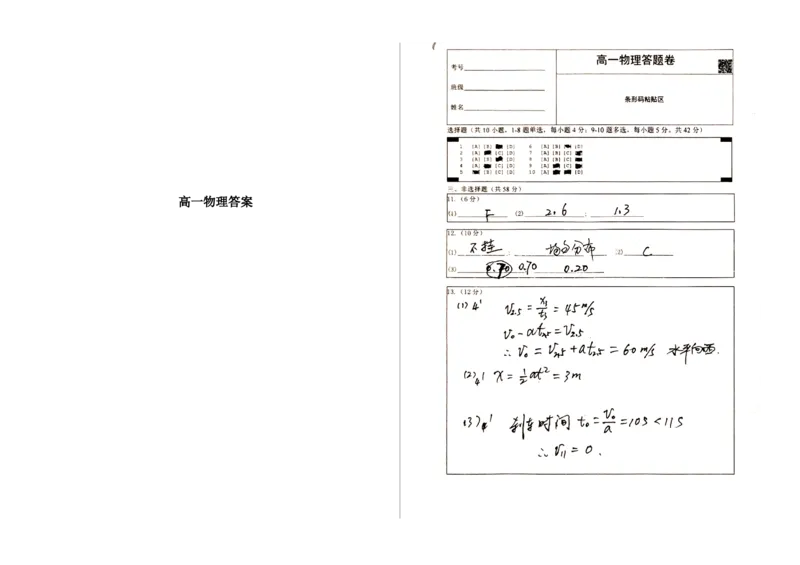 高一物理答案
高一物理答题卷
考号
班级
姓名
条形码粘贴区
选择题（共 10 小题，1-8 题单选，每小题 4 分；9-10 题多选，每小题 5 分，共 42 分）
1 [A] [B] [D] 6 [A] [B] [D]
2 [A] [C] [D] 7 [A] [B] [C]
3 [A] [B] [D] 8 [A] [B] [C]
4 [A] [C] [D] 9 [A] [C]
5 [B] [C] [D] 10 [A] [D]
二、非选择题（共 58 分）
11.（6分）
(1) F (2) 2.6 ; 1.3
12.（10分）
(1) 不挂 ; 均匀分布 (2) C
(3) 0.70 0.20
13.（12分）
(1) 4' V2.5 = x1/t1 = 45 m/s
V0 - at2.5 = V2.5
∴ V0 = V2.5 + at2.5 = 60 m/s 水平向西.
(2) 4' x = 1/2 at² = 3m
(3) 4' 刹车时间 t0 = V0/a = 10s < 11s
∴ V11 = 0.